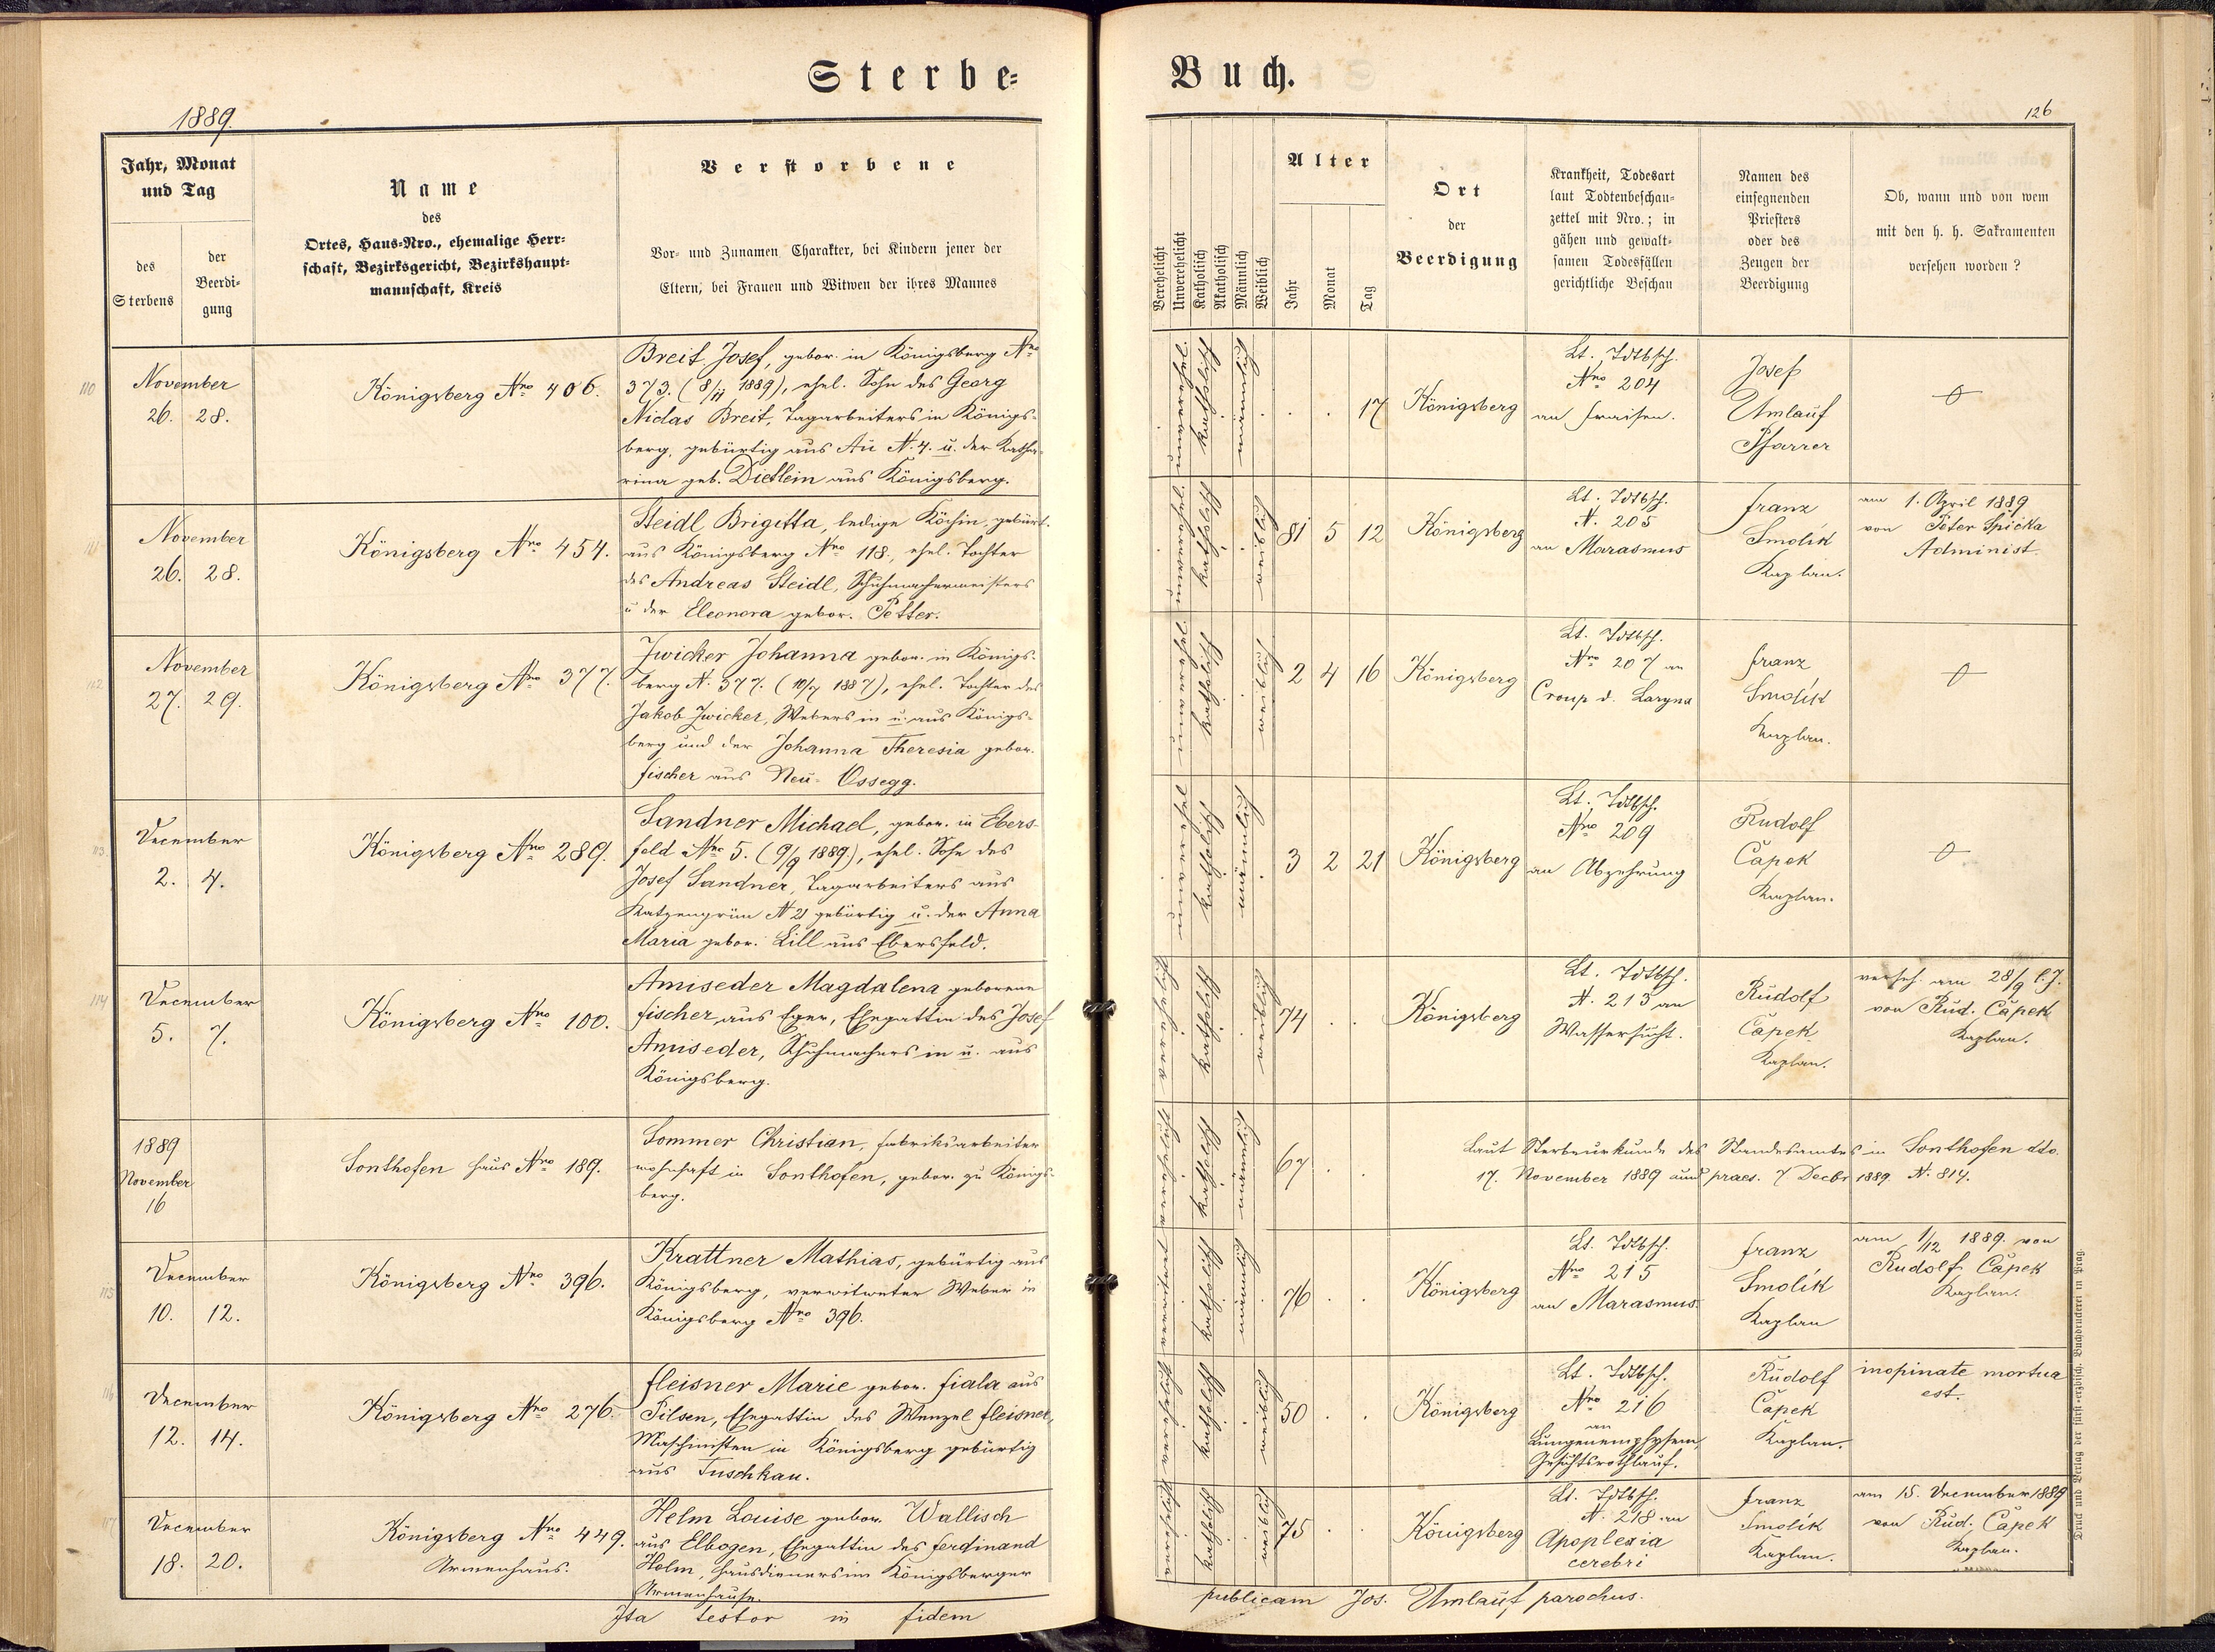 Sterbe-
Buch.
1889.
126
Jahr, Monat
und Tag
des
Sterbens
der
Beerdi-
gung
Name
des
Ortes, Haus-Nro., ehemalige Herr-
schaft, Bezirksgericht, Bezirkshaupt-
mannschaft, Kreis
Verstorbene
Vor- und Zunamen, Charakter, bei Kindern jener der
Eltern, bei Frauen und Witwen der ihres Mannes
Verehelicht
Unverehelicht
Katholisch
Akatholisch
Männlich
Weiblich
Alter
Jahr
Monat
Tag
Ort
der
Beerdigung
Krankheit, Todesart
laut Todtenbeschau-
zettel mit Nro.; in
gähen und gewalt-
samen Todesfällen
gerichtliche Beschau
Namen des
einsegnenden
Priesters
oder des
Zeugen der
Beerdigung
Ob, wann und von wem
mit den h. h. Sakramenten
versehen worden?
110
November
26. 28.
Königsberg Nro 406.
Breit Josef, gebor. in Königsberg Nro
373. (8/11 1889), ehel. Sohn des Georg
Niclas Breit, Tagarbeiters in Königs-
berg, gebürtig aus Au N. 4. u. der Katha-
rina geb. Dietlein aus Königsberg.
unverehel.
katholisch
männlich
. . 17
Königsberg
Lt. Tdtbsch.
Nro 204
an Fraisen.
Josef
Umlauf
Pfarrer
111
November
26. 28.
Königsberg Nro 454.
Steidl Brigitta, ledige Köchin, gebürt.
aus Königsberg Nro 118, ehel. Tochter
des Andreas Steidl, Schuhmachermeisters
u der Eleonora gebor. Petter.
unverehel.
katholisch
weiblich
81 5 12
Königsberg
Lt. Tdtbsch.
N. 205
an Marasmus
Franz
Smolik
Kaplan.
am 1. April 1889
von Peter Spička
Administ.
112
November
27. 29.
Königsberg Nro 377.
Zwicker Johanna gebor. in Königs-
berg N. 377. (10/7 1887), ehel. Tochter des
Jakob Zwicker, Webers in u. aus Königs-
berg und der Johanna Theresia gebor.
Fischer aus Neu-Ossegg.
unverehel.
katholisch
weiblich
2 4 16
Königsberg
Lt. Tdtbsch.
Nro 207 an
Croup d. Larynx
Franz
Smolik
Kaplan.
113
December
2. 4.
Königsberg Nro 289.
Sandner Michael, gebor. in Ebers-
feld Nro 5. (9/9 1889.), ehel. Sohn des
Josef Sandner, Tagarbeiters aus
Katzengrün N 21 gebürtig u. der Anna
Maria gebor. Lill aus Ebersfeld.
unverehel.
katholisch
männlich
3 2 21
Königsberg
Lt. Tdtbsch.
Nro 209
an Abzehrung
Rudolf
Čapek
Kaplan.
114
December
5. 7.
Königsberg Nro 100.
Amiseder Magdalena geborene
Fischer aus Eger, Ehegattin des Josef
Amiseder, Schuhmachers in u. aus
Königsberg.
verehelicht
katholisch
weiblich
74 . .
Königsberg
Lt. Tdtbsch.
N. 213 an
Wassersucht.
Rudolf
Čapek
Kaplan.
verseh. am 28/9 l. J.
von Rud. Čapek
Kaplan.
1889
November
16
Sonthofen Haus Nro 189.
Sommer Christian, Fabriksarbeiter
wohnhaft in Sonthofen, gebor. zu Königs-
berg.
verehelicht
katholisch
männlich
67 . .
Laut Sterbeurkunde des Standesamtes in Sonthofen dto.
17. November 1889 und praes. 7 Decbr 1889 N. 814.
115
December
10. 12.
Königsberg Nro 396.
Krattner Mathias, gebürtig aus
Königsberg, verwitweter Weber in
Königsberg Nro 396.
verwitwet
katholisch
männlich
76 . .
Königsberg
Lt. Tdtbsch.
Nro 215
an Marasmus.
Franz
Smolik
Kaplan
am 1/12 1889. von
Rudolf Čapek
Kaplan.
116
December
12. 14.
Königsberg Nro 276.
Fleisner Marie gebor. Fiala aus
Pilsen, Ehegattin des Wenzel Fleisner,
Maschinisten in Königsberg gebürtig
aus Tuschkau.
verehelicht
katholisch
weiblich
50 . .
Königsberg
Lt. Tdtbsch.
Nro 216
an
Lungenemphysem,
Gesichtsrothlauf.
Rudolf
Čapek
Kaplan.
inopinate mortua
est.
117
December
18. 20.
Königsberg Nro 449.
Armenhaus.
Helm Louise gebor. Wallisch
aus Elbogen, Ehegattin des Ferdinand
Helm, Hausdieners im Königsberger
Armenhause.
verehelicht
katholisch
weiblich
75 . .
Königsberg
Lt. Tdtbsch.
N. 218 an
Apoplexia
cerebri
Franz
Smolik
Kaplan.
am 15. December 1889
von Rud. Čapek
Kaplan.
Ita testor in fidem
publicam Jos. Umlauf parochus.
Druck und Verlag der fürst-erzbisch. Buchdruckerei in Prag.